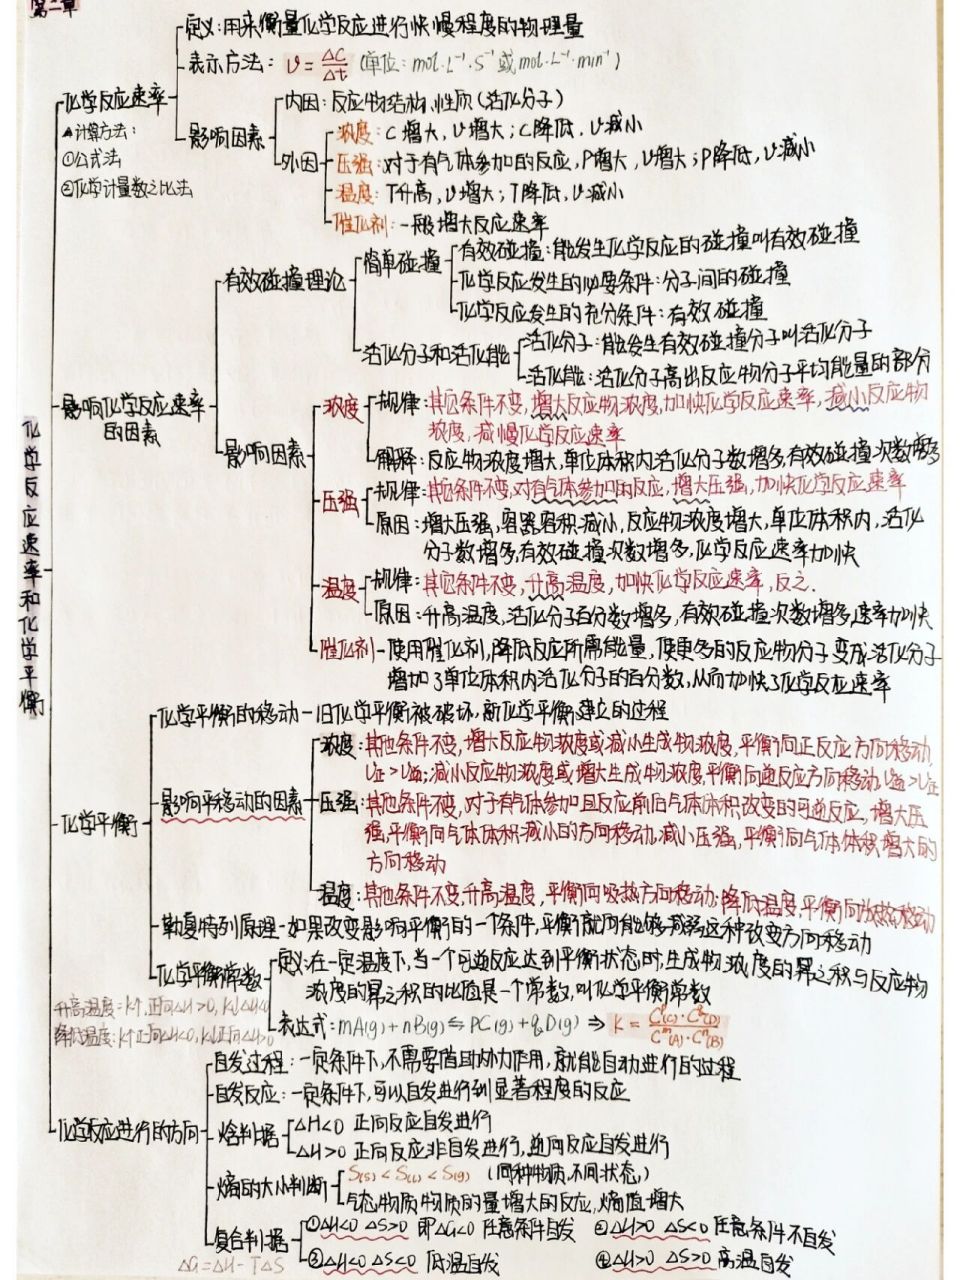 第二章
定义:用来衡量化学反应进行快慢程度的物理量
表示方法: υ=ΔC/Δt (单位: mol·L⁻¹·S⁻¹ 或 mol·L⁻¹·min⁻¹)
化学反应速率
▲计算方法:
①公式法
②化学计量数之比法
影响因素
内因:反应物结构、性质(活化分子)
外因
浓度: C增大, υ增大; C降低, υ减小
压强:对于有气体参加的反应, P增大, υ增大; P降低, υ减小
温度: T升高, υ增大; T降低, υ减小
催化剂:一般增大反应速率
化学反应速率和化学平衡
影响化学反应速率
的因素
有效碰撞理论
简单碰撞
有效碰撞:能发生化学反应的碰撞叫有效碰撞
化学反应发生的必要条件:分子间的碰撞
化学反应发生的充分条件:有效碰撞
活化分子和活化能
活化分子:能发生有效碰撞分子叫活化分子
活化能:活化分子高出反应物分子平均能量的部分
影响因素
浓度
规律:其它条件不变,增大反应物浓度,加快化学反应速率,减小反应物
浓度,减慢化学反应速率
解释:反应物浓度增大,单位体积内活化分子数增多,有效碰撞次数增多
压强
规律:其它条件不变,对有气体参加的反应,增大压强,加快化学反应速率
原因:增大压强,容器容积减小,反应物浓度增大,单位体积内,活化
分子数增多,有效碰撞次数增多,化学反应速率加快
温度
规律:其它条件不变,升高温度,加快化学反应速率,反之.
原因:升高温度,活化分子百分数增多,有效碰撞次数增多,速率加快
催化剂-使用催化剂,降低反应所需能量,使更多的反应物分子变成活化分子
增加了单位体积内活化分子的百分数,从而加快了化学反应速率
化学平衡
化学平衡的移动-旧化学平衡被破坏,新化学平衡建立的过程
影响平移动的因素
浓度:其他条件不变,增大反应物浓度或减小生成物浓度,平衡向正反应方向移动
υ正>υ逆;减小反应物浓度或增大生成物浓度,平衡向逆反应方向移动,υ逆>υ正
压强:其他条件不变,对于有气体参加且反应前后气体体积改变的可逆反应,增大压
强,平衡向气体体积减小的方向移动,减小压强,平衡向气体体积增大的
方向移动
温度:其他条件不变,升高温度,平衡向吸热方向移动;降低温度,平衡向放热移动
勒夏特列原理-如果改变影响平衡的一个条件,平衡就向能够减弱这种改变方向移动
化学平衡常数
定义:在一定温度下,当一个可逆反应达到平衡状态时,生成物浓度的幂之积与反应物
浓度的幂之积的比值是一个常数,叫化学平衡常数
升高温度:K↑,正向ΔH>0, K↓ΔH<0
降低温度:K↑正向ΔH<0, K↓正向ΔH>0
表达式: mA(g)+nB(g)⇋PC(g)+qD(g) ⇒ K=Cᵖ(C)·C^q(D)/Cᵐ(A)·Cⁿ(B)
化学反应进行的方向
自发过程:一定条件下,不需要借助外力作用,就能自动进行的过程
自发反应:一定条件下,可以自发进行到显著程度的反应
焓判据
ΔH<0 正向反应自发进行
ΔH>0 正向反应非自发进行,逆向反应自发进行
熵的大小判断
S(s)<S(l)<S(g) (同种物质,不同状态)
气态物质物质的量增大的反应,熵值增大
复合判据
ΔG=ΔH-TΔS
①ΔH<0 ΔS>0 即ΔG<0 任意条件自发 ②ΔH>0 ΔS<0 任意条件不自发
③ΔH<0 ΔS<0 低温自发 ④ΔH>0 ΔS>0 高温自发